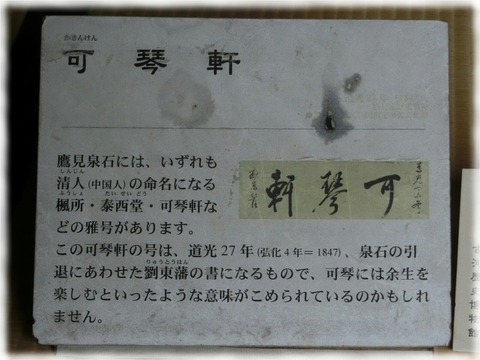 かきんけん
可琴軒
鷹見泉石には、いずれも
しんじん
清人(中国人)の命名になる
ふうしょ たいせいどう
楓所・泰西堂・可琴軒な
どの雅号があります。
この可琴軒の号は、道光27年(弘化4年=1847)、泉石の引
りゅうとうはん
退にあわせた劉東藩の書になるもので、可琴には余生を
楽しむといったような意味がこめられているのかもしれ
ません。
軒琴可
古河歴史博物館